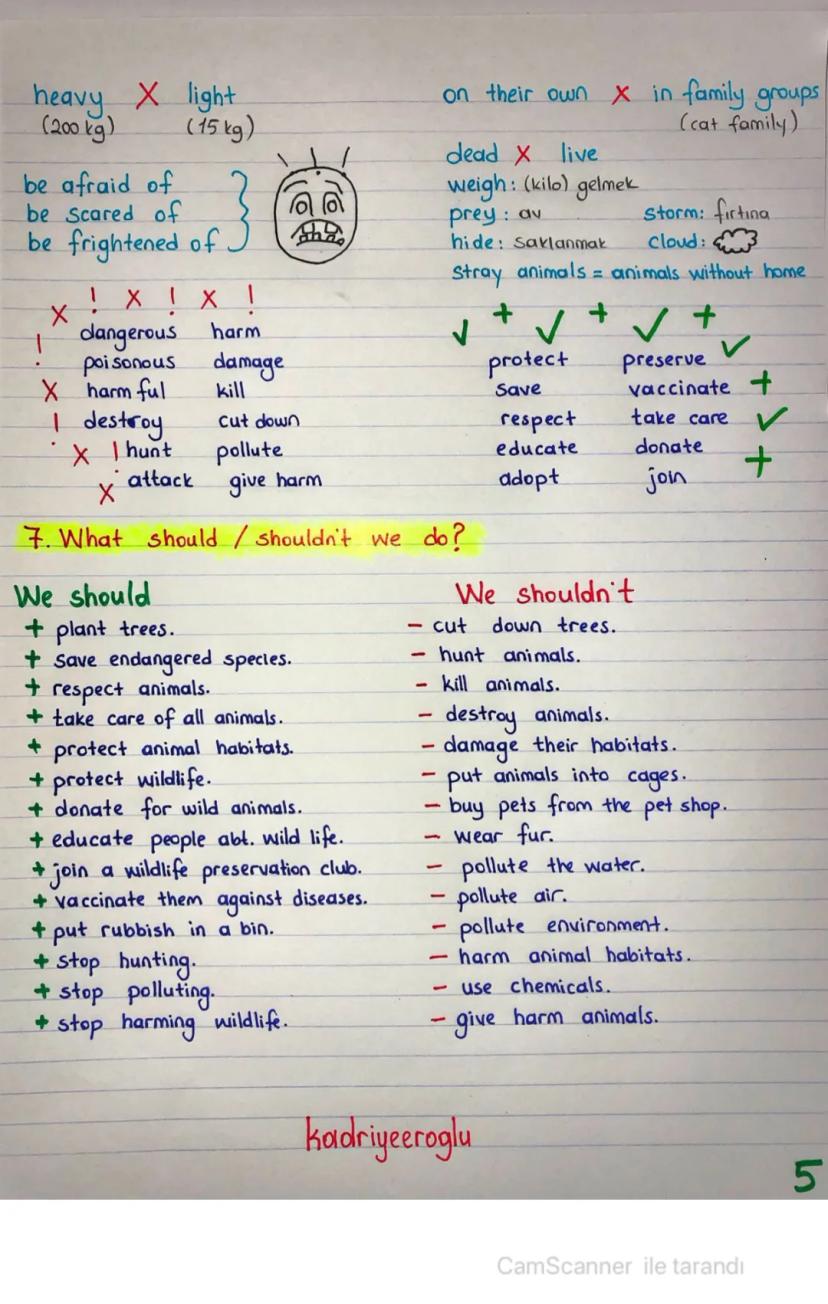 heavy X light
(200 kg) (15 kg)
be afraid of
be scared of
be frightened of
on their own X in family groups
(cat family)
dead X live
weigh: (kilo) gelmek
prey: av storm: fırtına
hide: saklanmak cloud:
stray animals = animals without home
X ! X ! X !
! dangerous harm
poisonous damage
X harmful kill
! destroy cut down
X ! hunt pollute
X attack give harm
✓ + ✓ + ✓ +
protect preserve ✓
save vaccinate +
respect take care ✓
educate donate +
adopt join
7. What should / shouldn't we do?
We should
+ plant trees.
+ save endangered species.
+ respect animals.
+ take care of all animals.
+ protect animal habitats.
+ protect wildlife.
+ donate for wild animals.
+ educate people abt. wild life.
+ join a wildlife preservation club.
+ vaccinate them against diseases.
+ put rubbish in a bin.
+ stop hunting.
+ stop polluting.
+ stop harming wildlife.
We shouldn't
- cut down trees.
- hunt animals.
- kill animals.
- destroy animals.
- damage their habitats.
- put animals into cages.
- buy pets from the pet shop.
- wear fur.
- pollute the water.
- pollute air.
- pollute environment.
- harm animal habitats.
- use chemicals.
- give harm animals.
kadriyeeroglu
5
CamScanner ile tarandı